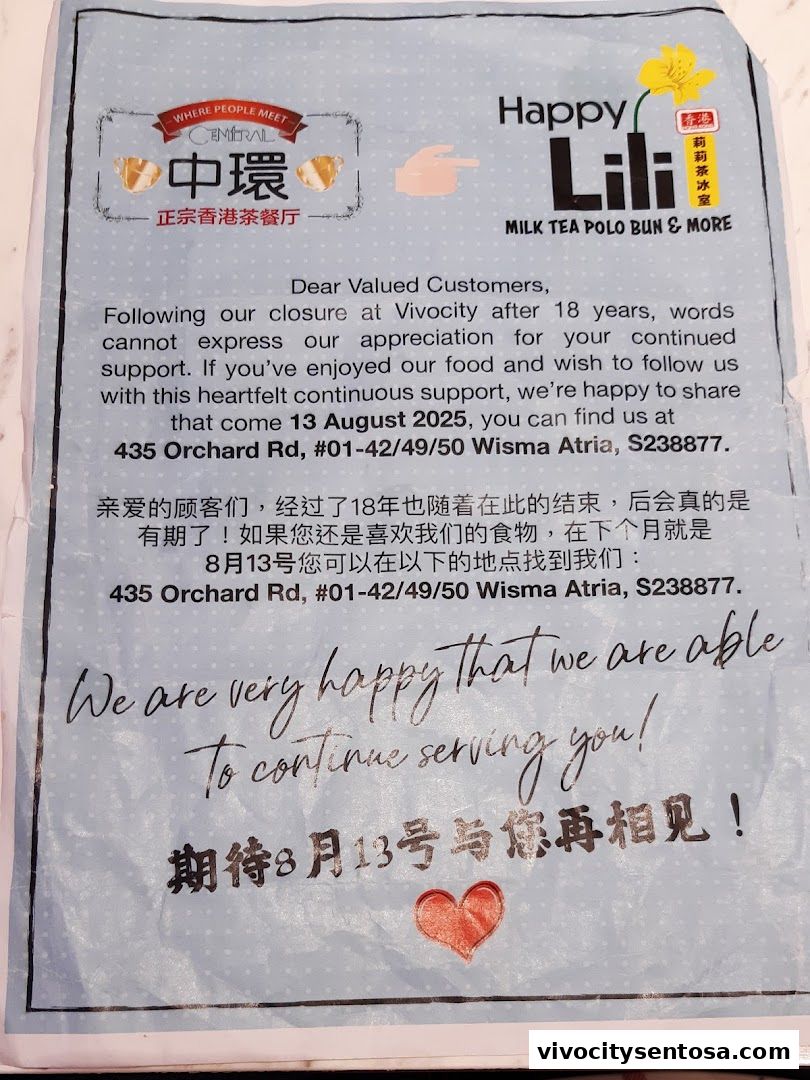 WHERE PEOPLE MEET
CENTRAL
中環
正宗香港茶餐厅
Happy
Lili
香港
莉莉茶冰室
MILK TEA POLO BUN & MORE
Dear Valued Customers,
Following our closure at Vivocity after 18 years, words
cannot express our appreciation for your continued
support. If you've enjoyed our food and wish to follow us
with this heartfelt continuous support, we're happy to share
that come 13 August 2025, you can find us at
435 Orchard Rd, #01-42/49/50 Wisma Atria, S238877.
亲爱的顾客们，经过了18年也随着在此的结束，后会真的是
有期了！如果您还是喜欢我们的食物，在下个月就是
8月13号您可以在以下的地点找到我们：
435 Orchard Rd, #01-42/49/50 Wisma Atria, S238877.
We are very happy that we are able
to continue serving you!
期待8月13号与您再相见！
vivocitysentosa.com